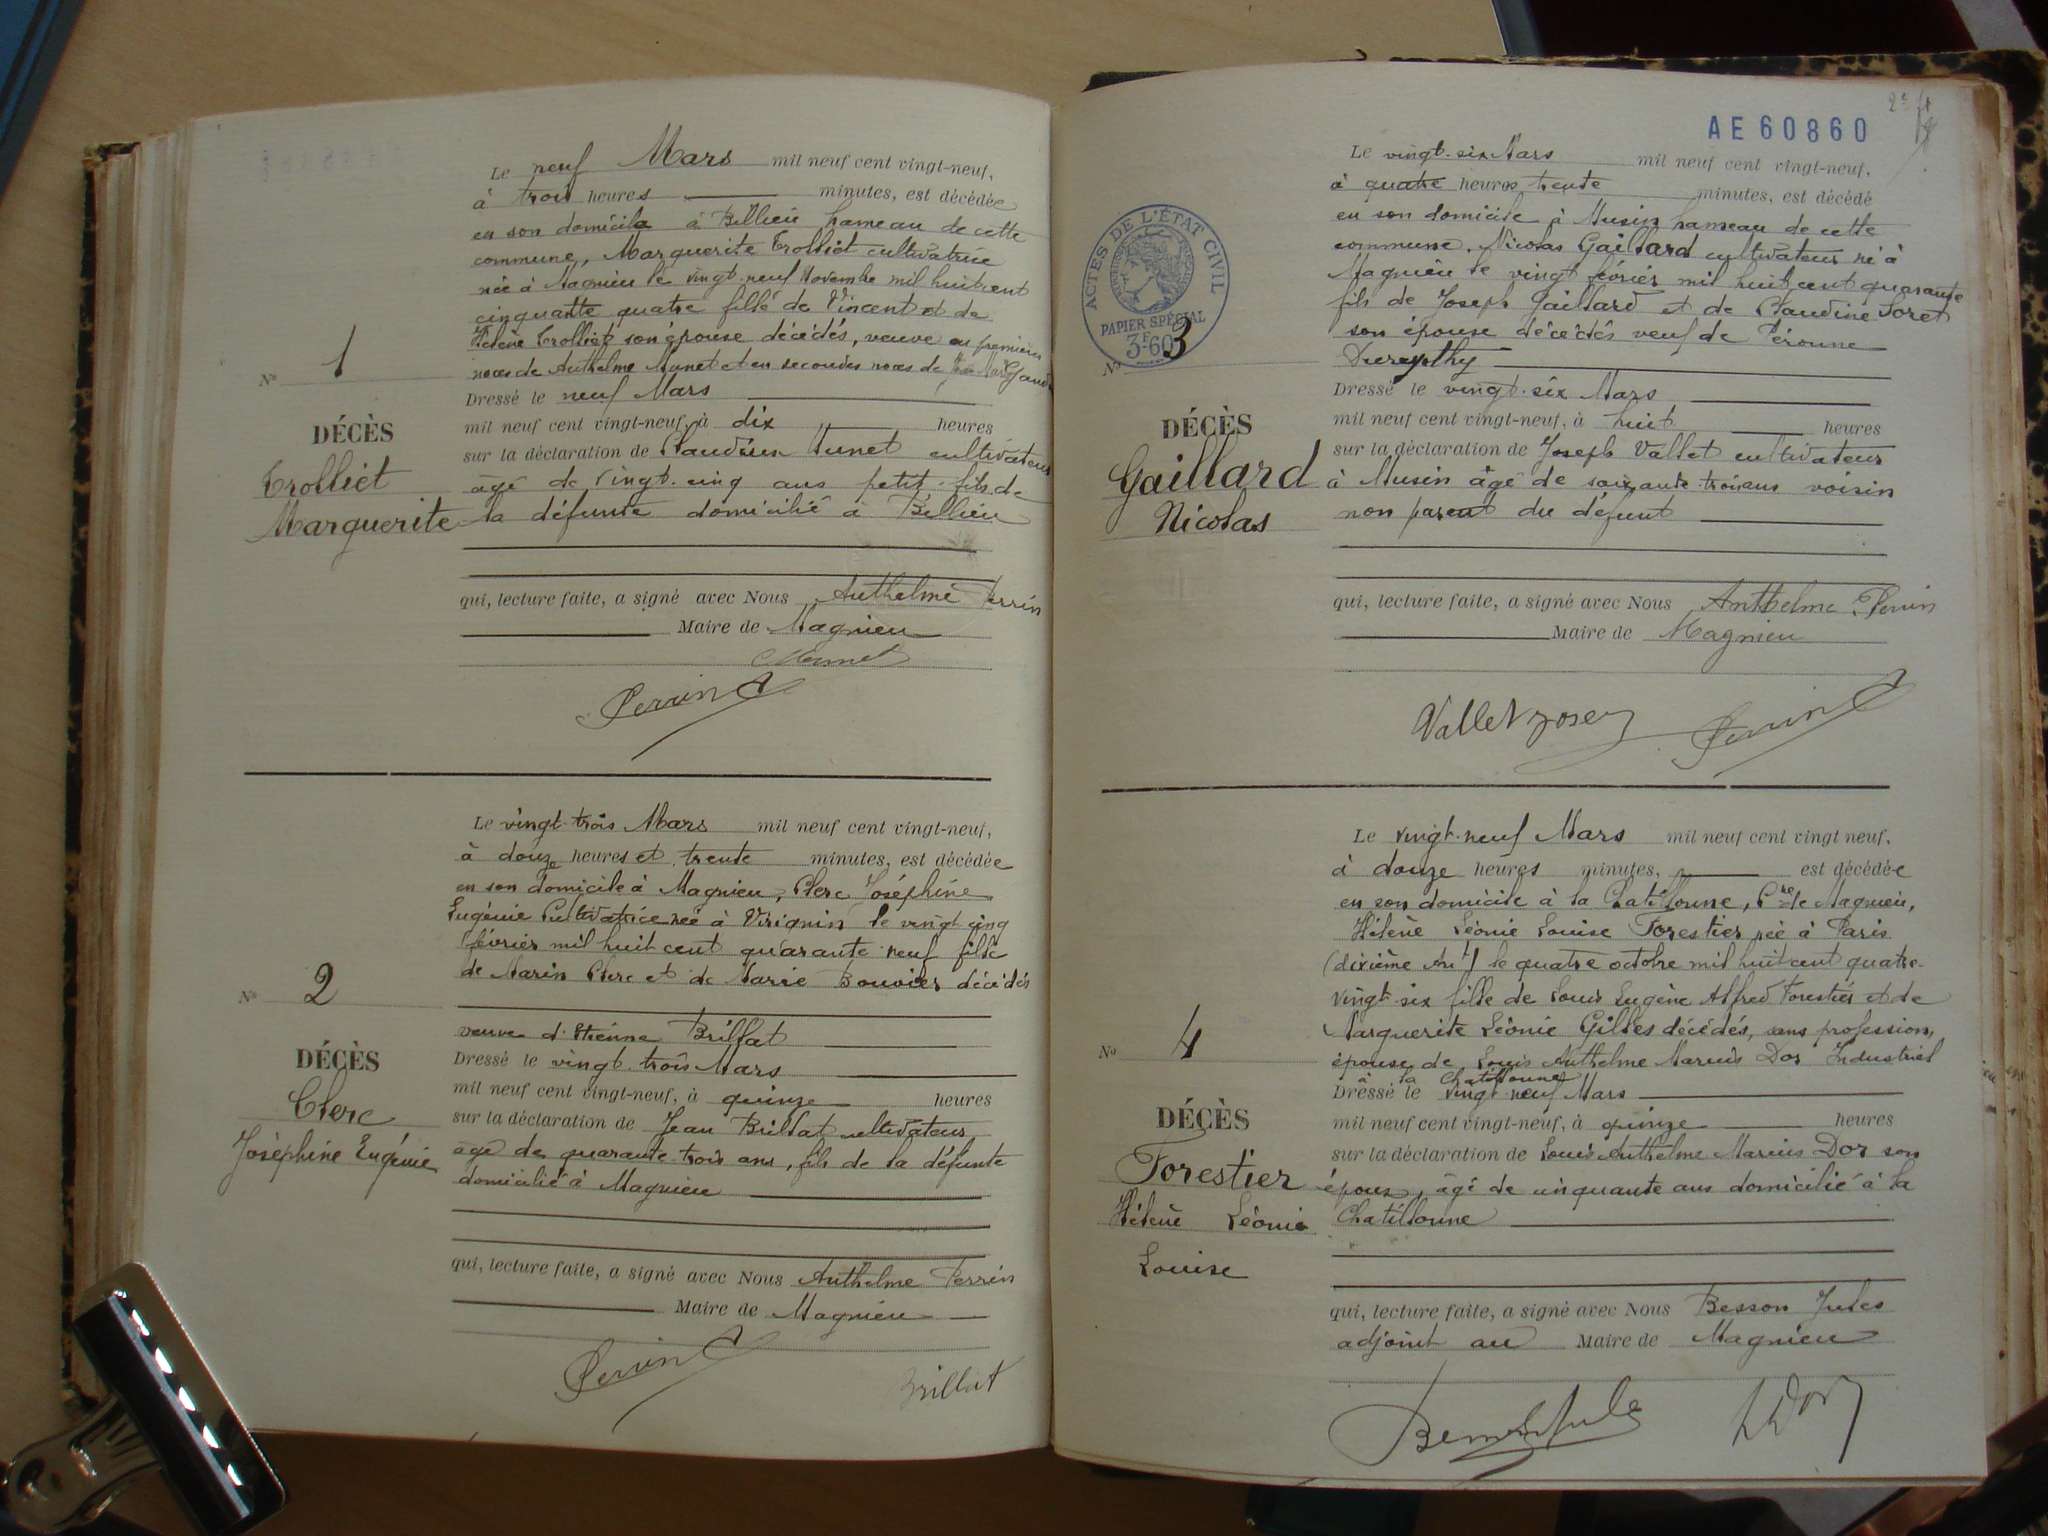 Le neuf Mars mil neuf cent vingt-neuf,
à trois heures minutes, est décédée
en son domicile à Billieu hameau de cette
commune, Marguerite Trolliet cultivatrice
née à Magnieu le vingt-neuf Novembre mil huit cent
cinquante quatre fille de Vincent et de
Hélène Trolliet son épouse décédés, veuve en premières
noces de Anthelme Munet et en secondes noces de
No 1
Dressé le neuf Mars
mil neuf cent vingt-neuf, à dix heures
DÉCÈS
sur la déclaration de Claudien Munet cultivateur
Trolliet
âgé de vingt-cinq ans petit-fils de
Marguerite
la défunte domicilié à Billieu
qui, lecture faite, a signé avec Nous Anthelme Perrin
Maire de Magnieu
C Munet
Perrin A
Le vingt-trois Mars mil neuf cent vingt-neuf,
à douze heures et trente minutes, est décédée
en son domicile à Magnieu, Clerc Joséphine
Eugénie Cultivatrice née à Virignin le vingt cinq
février mil huit cent quarante neuf fille
de Marin Clerc et de Marie Bouvier décédés
No 2
veuve d'Etienne Brillat
DÉCÈS
Dressé le vingt-trois Mars
mil neuf cent vingt-neuf, à quinze heures
Clerc
sur la déclaration de Jean Brillat cultivateur
Joséphine Eugénie
âgé de quarante-trois ans, fils de la défunte
domicilié à Magnieu
qui, lecture faite, a signé avec Nous Anthelme Perrin
Maire de Magnieu
Perrin A
Brillat
2e
AE 60860
Le vingt-six Mars mil neuf cent vingt-neuf,
à quatre heures trente minutes, est décédé
en son domicile à Musin hameau de cette
commune, Nicolas Gaillard cultivateur né à
Magnieu le vingt février mil huit cent quarante
fils de Joseph Gaillard et de Claudine Foret
son épouse décédés veuf de Péronne
ACTES DE L'ÉTAT CIVIL
PAPIER SPÉCIAL
3F60
No 3
Dressé le vingt-six Mars
mil neuf cent vingt-neuf, à huit heures
DÉCÈS
sur la déclaration de Joseph Vallet cultivateur
Gaillard
à Musin âgé de soixante-trois ans voisin
Nicolas
non parent du défunt
qui, lecture faite, a signé avec Nous Anthelme Perrin
Maire de Magnieu
Vallet Josep
Perrin A
Le vingt-neuf Mars mil neuf cent vingt neuf,
à douze heures minutes, est décédée
en son domicile à la Chatillonne, Cne de Magnieu,
Hélène Léonie Louise Forestier née à Paris
(dixième Art) le quatre octobre mil huit cent quatre-
vingt-six fille de Louis Eugène Alfred Forestier et de
Marguerite Léonie Gilles décédés, sans profession,
No 4
épouse de Louis Anthelme Marius Dor Industriel
à la Chatillonne
Dressé le vingt-neuf Mars
DÉCÈS
mil neuf cent vingt-neuf, à quinze heures
sur la déclaration de Louis Anthelme Marius Dor son
Forestier
époux, âgé de cinquante ans domicilié à la
Hélène Léonie
Chatillonne
Louise
qui, lecture faite, a signé avec Nous Besson Jules
adjoint au Maire de Magnieu
Besson Jules
L Dor